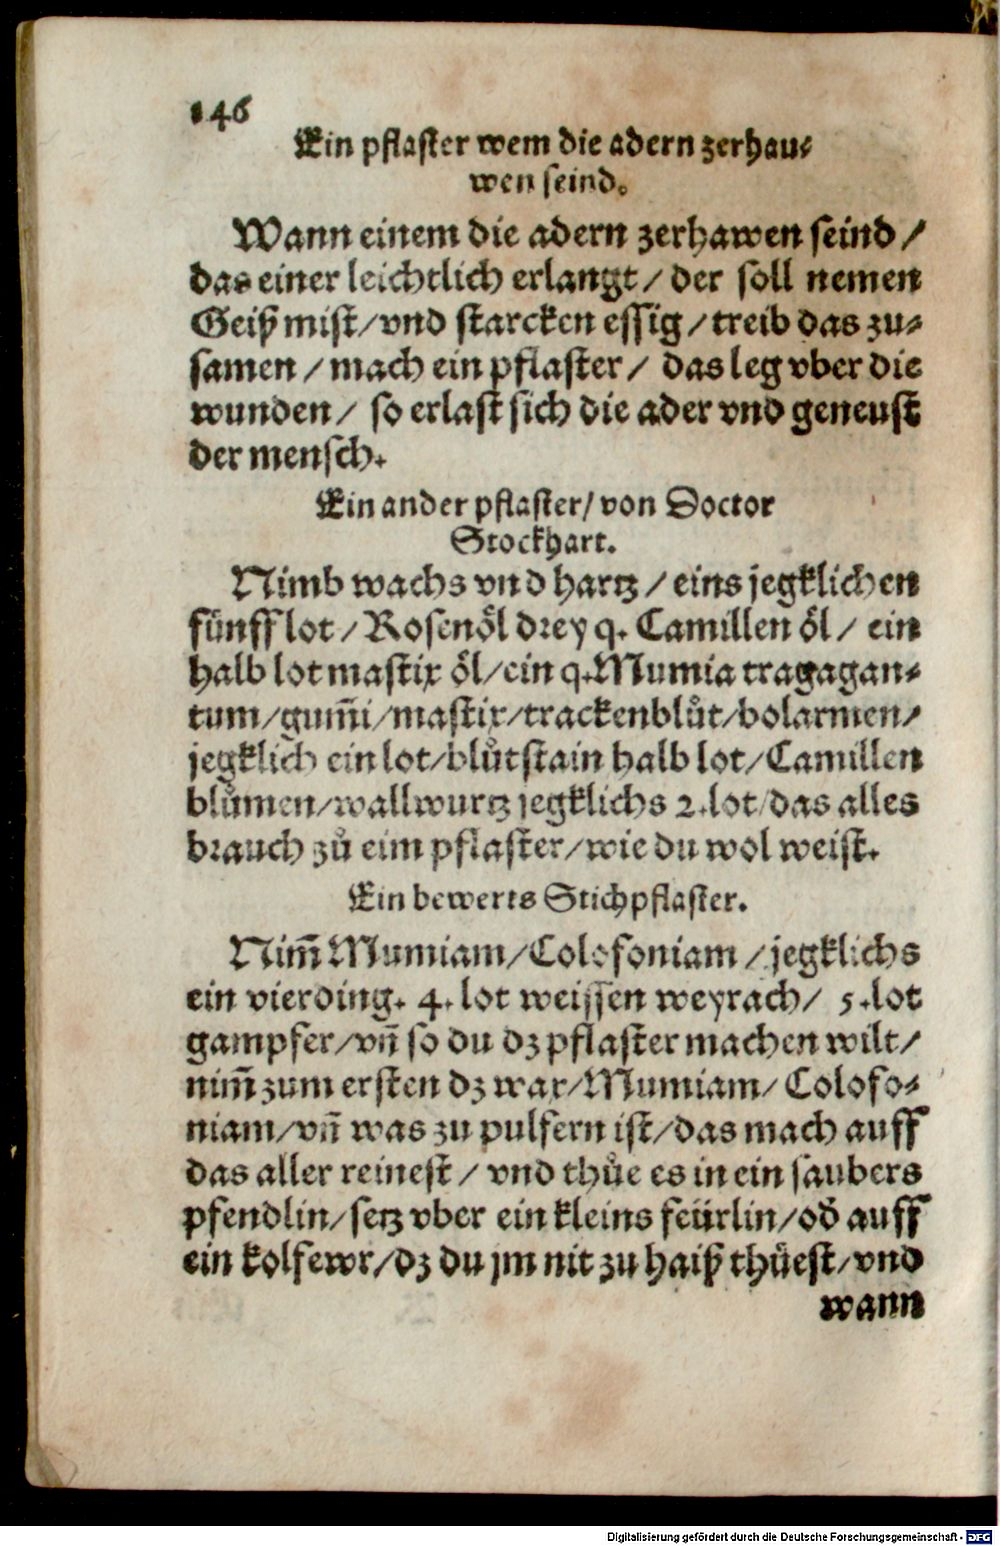 146
Ein pflaster wem die adern zerhau⸗
wen seind.
Wann einem die adern zerhawen seind /
das einer leichtlich erlangt / der soll nemen
Geiß mist / vnd starcken essig / treib das zu⸗
samen / mach ein pflaster / das leg vber die
wunden / so erlast sich die ader vnd geneust
der mensch.
Ein ander pflaster / von Doctor
Stockhart.
Nimb wachs vnd hartz / eins jegklichen
fünff lot / Rosenöl drey q. Camillen öl / ein
halb lot mastix öl / ein q. Mumia tragagan⸗
tum / gum̃i / mastix / trackenblůt / bolarmen /
jegklich ein lot / blůtstain halb lot / Camillen
blůmen / wallwurtz jegklichs 2. lot / das alles
brauch zů eim pflaster / wie du wol weist.
Ein bewerts Stichpflaster.
Nim̃ Mumiam / Colofoniam / jegklichs
ein vierding. 4. lot weissen weyrach / 5. lot
gampfer / vñ so du dz pflaster machen wilt /
nim̃ zum ersten dz wax / Mumiam / Colofo⸗
niam / vñ was zu pulfern ist / das mach auff
das aller reinest / vnd thůe es in ein saubers
pfendlin / setz vber ein kleins feürlin / od̃ auff
ein kolfewr / dz du jm nit zu haiß thůest / vnd
wann
Digitalisierung gefördert durch die Deutsche Forschungsgemeinschaft - DFG